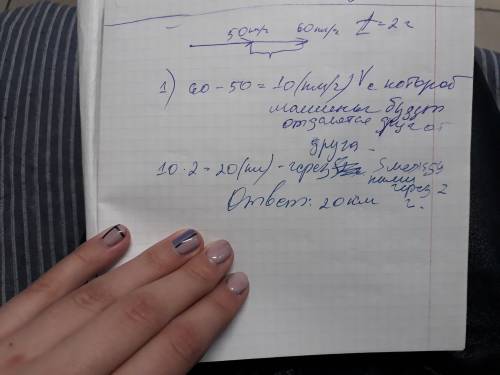 50 км/ч 60 км/ч t = 2 ч
1) 60 - 50 = 10 (км/ч) V с которой
машины будут
отдалятся друг от
друга.
10 · 2 = 20 (км) - S между
ними
через 2
Ответ: 20 км ч.